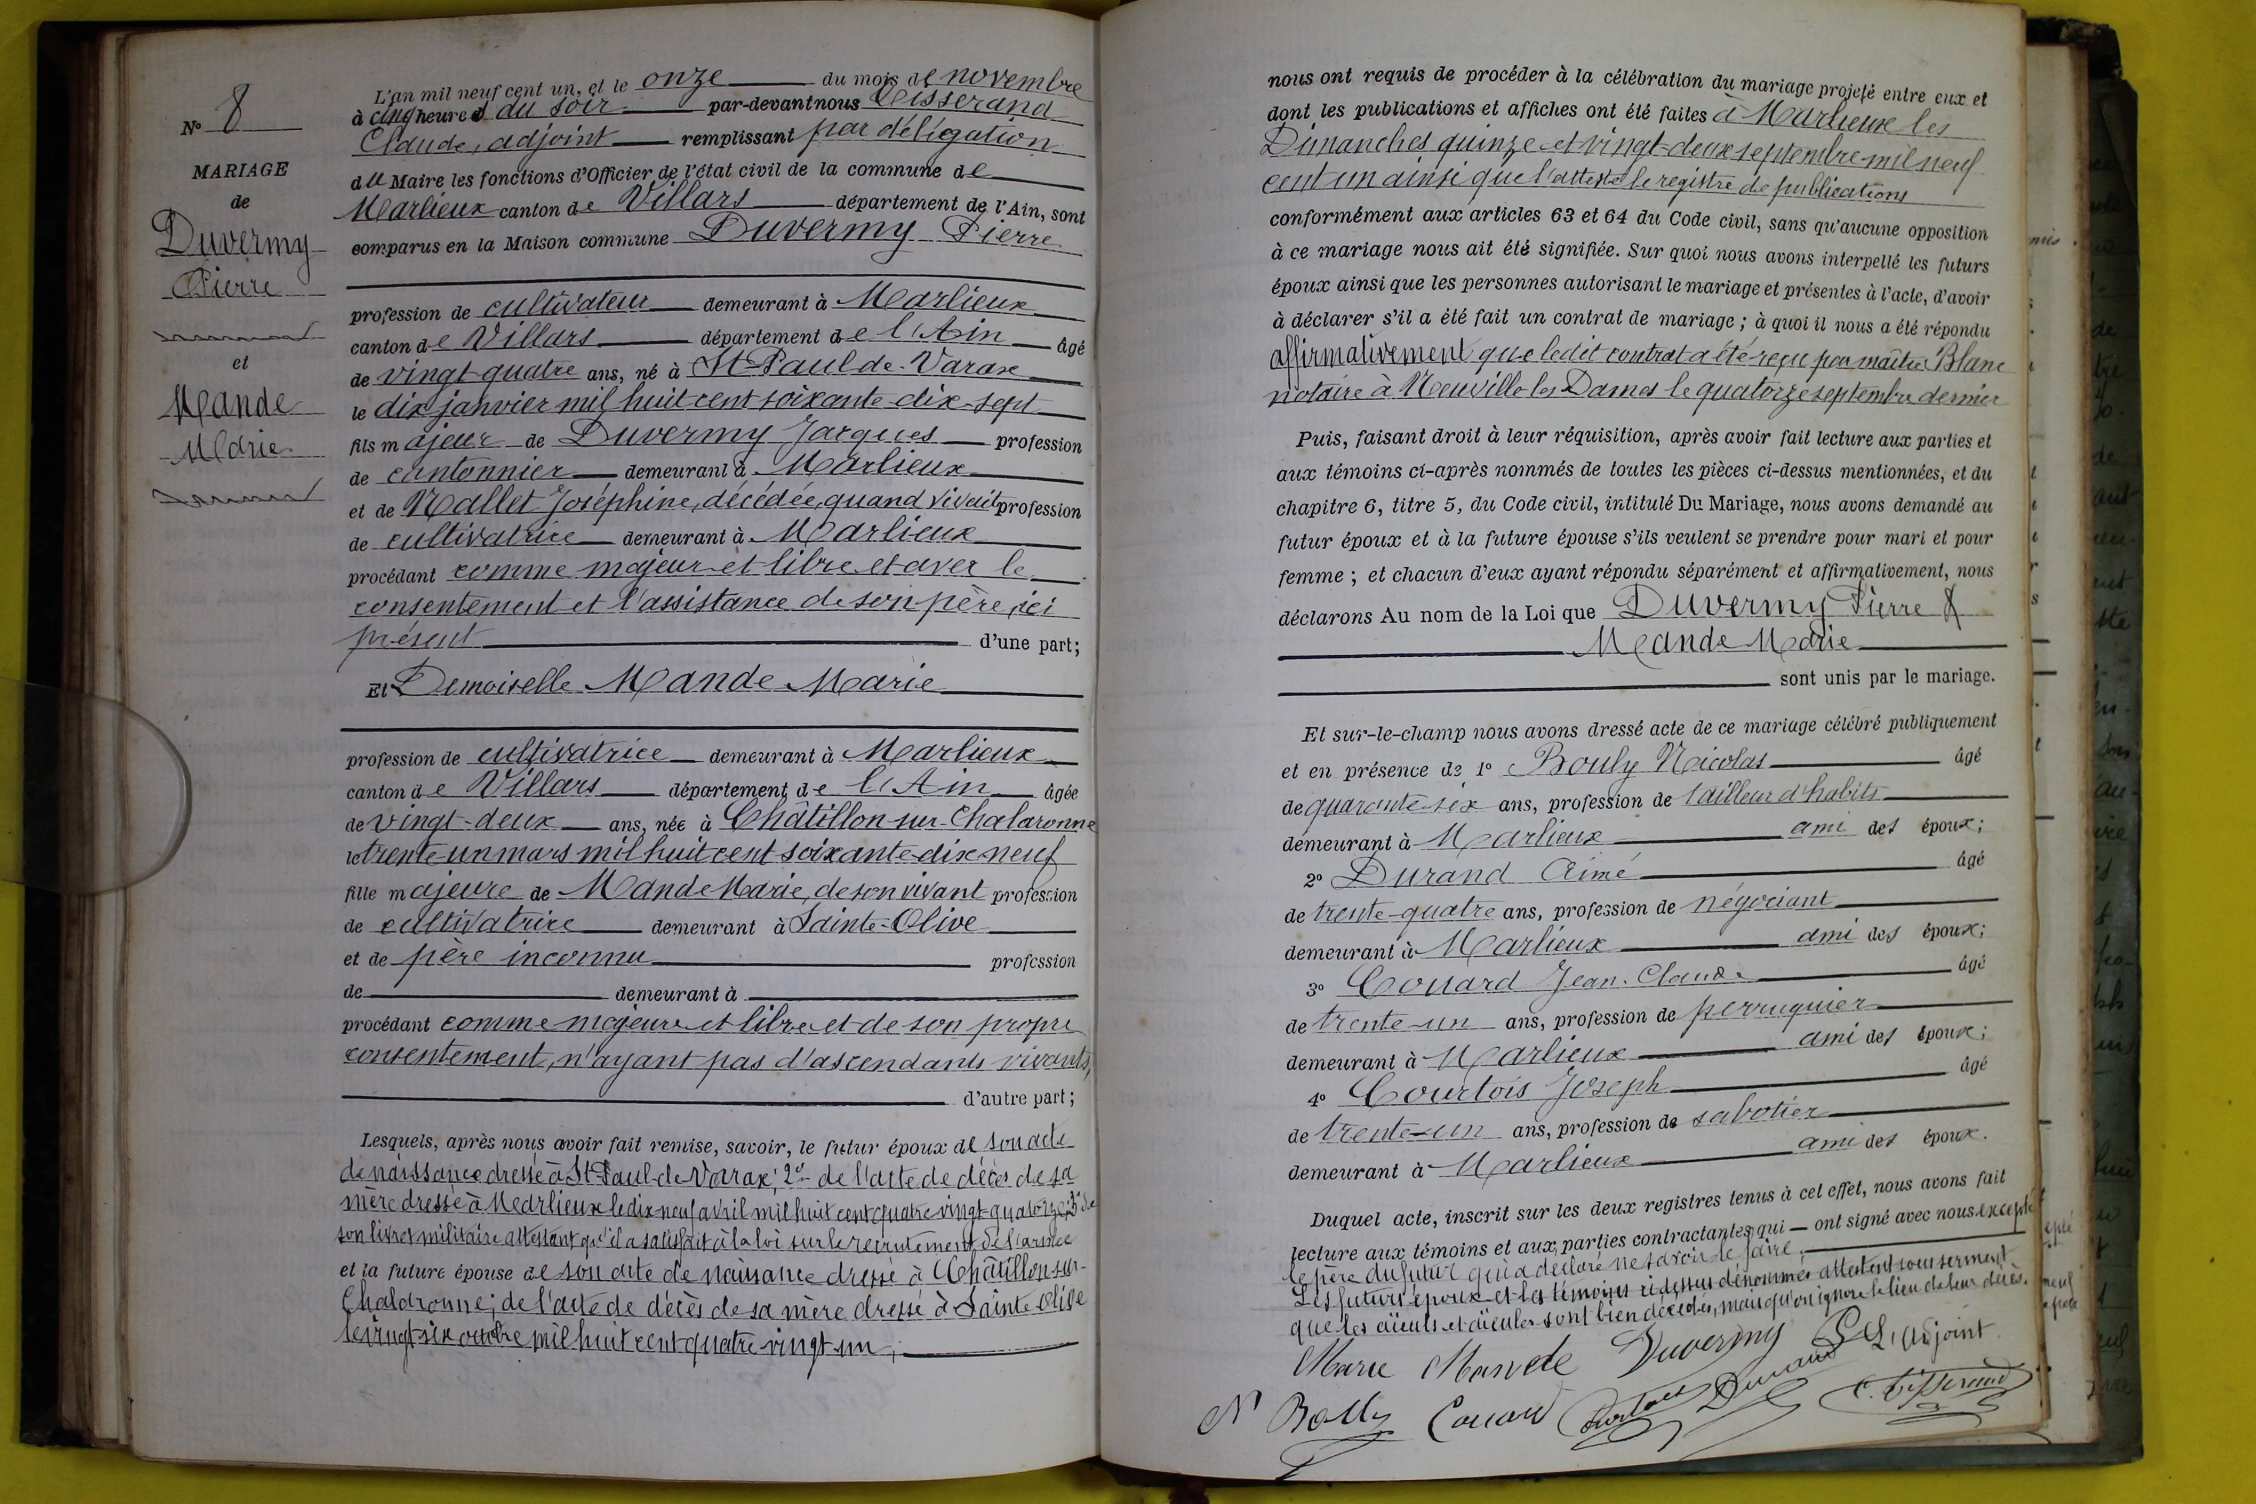 N° 8
MARIAGE
de
Duvermy
Pierre
et
Mande
Marie
L'an mil neuf cent un, et le onze du mois de novembre
à cinq heures du soir par-devant nous Tisserand
Claude, adjoint remplissant par délégation
du Maire les fonctions d'Officier de l'état civil de la commune de
Marlieux canton de Villars département de l'Ain, sont
comparus en la Maison commune Duvermy Pierre
profession de cultivateur demeurant à Marlieux
canton de Villars département de l'Ain âgé
de vingt-quatre ans, né à St-Paul-de-Varax
le dix janvier mil huit cent soixante-dix-sept
fils majeur de Duvermy Jacques profession
de cantonnier demeurant à Marlieux
et de Mallet Joséphine, décédée, quand vivait profession
de cultivatrice demeurant à Marlieux
procédant comme majeur et libre et avec le
consentement et l'assistance de son père, ici
présent d'une part;
Et Demoiselle Mande Marie
profession de cultivatrice demeurant à Marlieux
canton de Villars département de l'Ain âgée
de vingt-deux ans, née à Châtillon-sur-Chalaronne
le trente-un mars mil huit cent soixante-dix-neuf
fille majeure de Mande Marie, de son vivant profession
de cultivatrice demeurant à Sainte-Olive
et de père inconnu profession
de demeurant à
procédant comme majeure et libre et de son propre
consentement, n'ayant pas d'ascendants vivants,
d'autre part;
Lesquels, après nous avoir fait remise, savoir, le futur époux de son acte
de naissance dressé à St-Paul-de-Varax; 2° de l'acte de décès de sa
mère dressé à Marlieux le dix-neuf avril mil huit cent quatre-vingt-quatorze; 3° de
son livret militaire attestant qu'il a satisfait à la loi sur le recrutement de l'armée
et la future épouse de son acte de naissance dressé à Châtillon-sur-
Chalaronne; de l'acte de décès de sa mère dressé à Sainte Olive
le vingt-six octobre mil huit cent quatre-vingt-un;
nous ont requis de procéder à la célébration du mariage projeté entre eux et
dont les publications et affiches ont été faites à Marlieux les
Dimanches quinze et vingt-deux septembre mil neuf
cent un ainsi que l'atteste le registre de publications
conformément aux articles 63 et 64 du Code civil, sans qu'aucune opposition
à ce mariage nous ait été signifiée. Sur quoi nous avons interpellé les futurs
époux ainsi que les personnes autorisant le mariage et présentes à l'acte, d'avoir
à déclarer s'il a été fait un contrat de mariage; à quoi il nous a été répondu
affirmativement que ledit contrat a été reçu par maître Blanc
notaire à Neuville les Dames le quatorze septembre dernier
Puis, faisant droit à leur réquisition, après avoir fait lecture aux parties et
aux témoins ci-après nommés de toutes les pièces ci-dessus mentionnées, et du
chapitre 6, titre 5, du Code civil, intitulé Du Mariage, nous avons demandé au
futur époux et à la future épouse s'ils veulent se prendre pour mari et pour
femme; et chacun d'eux ayant répondu séparément et affirmativement, nous
déclarons Au nom de la Loi que Duvermy Pierre &
Mande Marie
sont unis par le mariage.
Et sur-le-champ nous avons dressé acte de ce mariage célébré publiquement
et en présence de 1° Bouly Nicolas âgé
de quarante-six ans, profession de tailleur d'habits
demeurant à Marlieux ami des époux;
2° Durand Aimé âgé
de trente-quatre ans, profession de négociant
demeurant à Marlieux ami des époux;
3° Couard Jean-Claude âgé
de trente-un ans, profession de perruquier
demeurant à Marlieux ami des époux;
4° Courtois Joseph âgé
de trente-un ans, profession de sabotier
demeurant à Marlieux ami des époux.
Duquel acte, inscrit sur les deux registres tenus à cet effet, nous avons fait
lecture aux témoins et aux parties contractantes qui ont signé avec nous excepté
le père du futur qui a déclaré ne savoir le faire.
Les futurs époux et les témoins ci-dessus dénommés attestent sous serment
que les aïeuls et aïeules sont bien décédés, mais qu'on ignore le lieu de leur décès.
Marie Mande Duvermy L'adjoint
N Bolly Couard Courtois Durand C. Tisserand